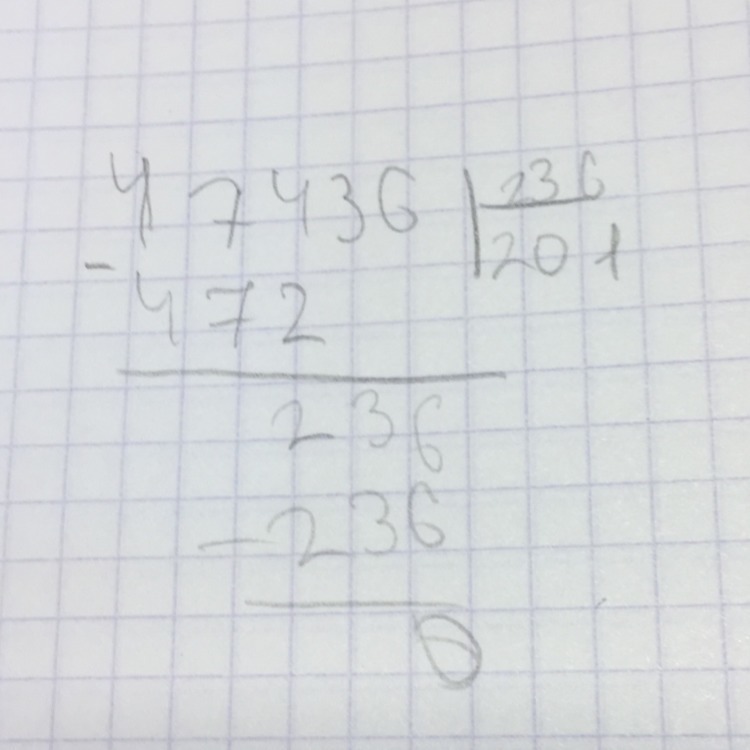 47436 236
- 201
472
236
-236
0